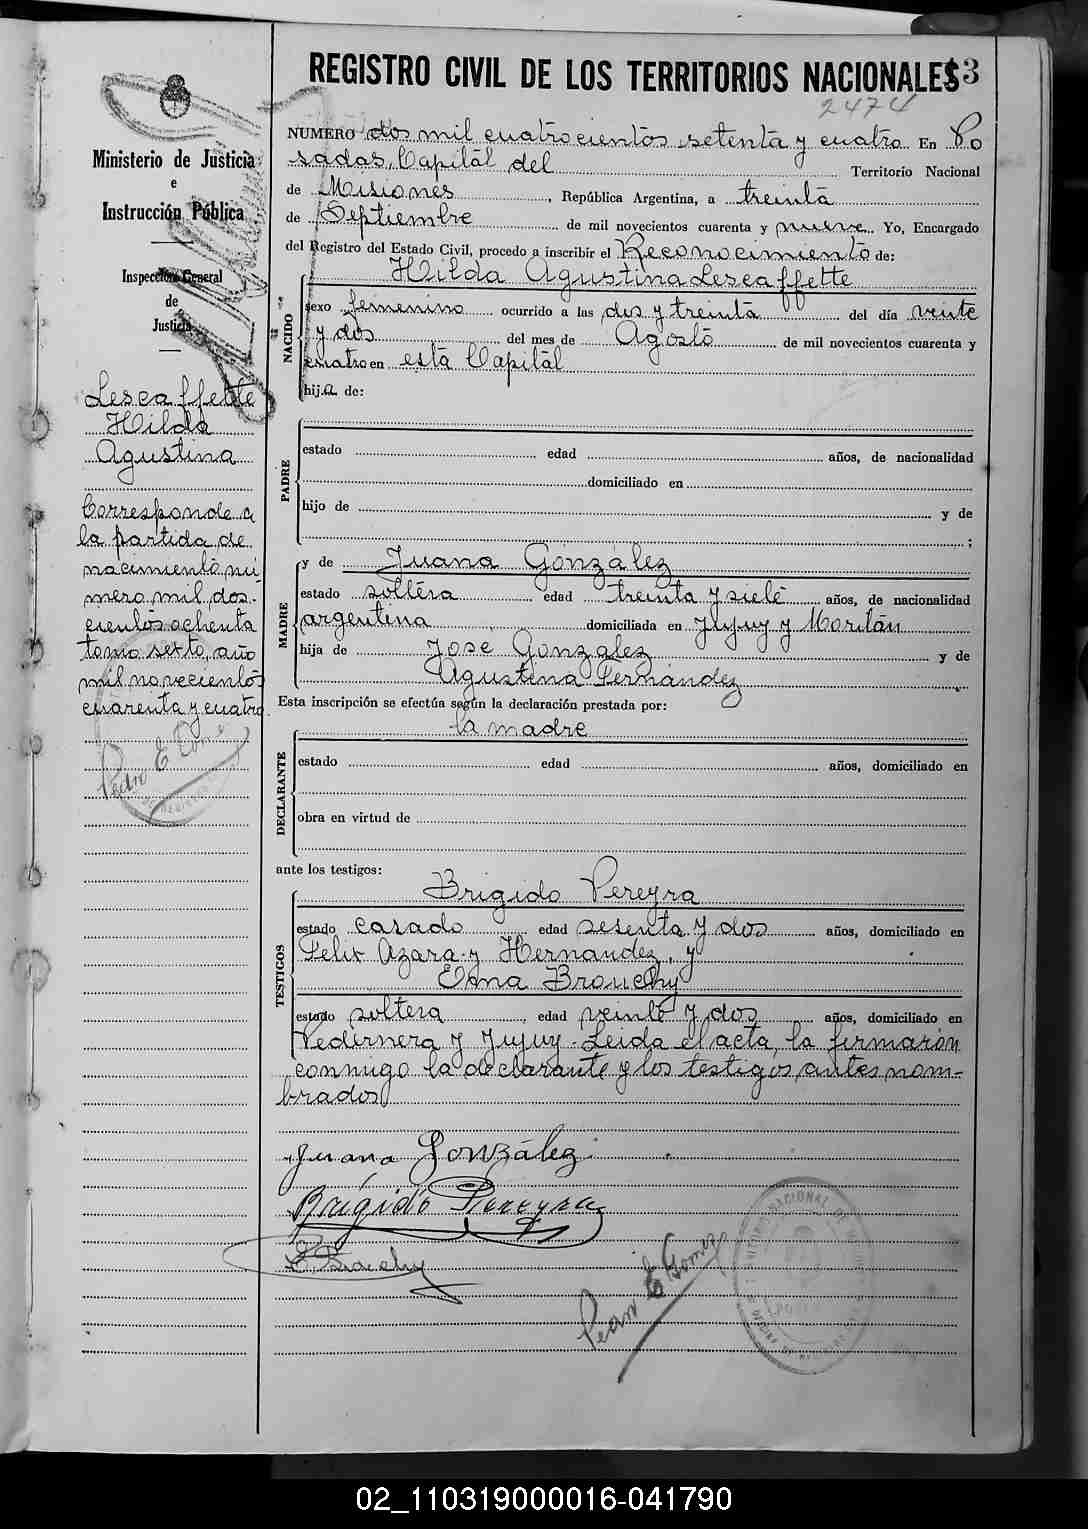 REGISTRO CIVIL DE LOS TERRITORIOS NACIONALES
2474
Ministerio de Justicia
e
Instrucción Pública
Inspección General
de
Justicia
Lescaffette
Hilda
Agustina
Corresponde a
la partida de
nacimiento nú
mero mil dos-
cientos ochenta
tomo sexto, año
mil novecientos
cuarenta y cuatro.
NUMERO dos mil cuatrocientos setenta y cuatro En Po
sadas, Capital del Territorio Nacional
de Misiones, República Argentina, a treinta
de Septiembre de mil novecientos cuarenta y nueve Yo, Encargado
del Registro del Estado Civil, procedo a inscribir el Reconocimiento de:
Hilda Agustina Lescaffette
NACIDO
sexo femenino ocurrido a las dos y treinta del día veinte
y dos del mes de Agosto de mil novecientos cuarenta y
cuatro en esta Capital
hija de:
PADRE
estado edad años, de nacionalidad
domiciliado en
hijo de y de
;
MADRE
y de Juana González
estado soltera edad treinta y siete años, de nacionalidad
argentina domiciliada en Jujuy y
hija de José González y de
Agustina Fernández
Esta inscripción se efectúa según la declaración prestada por:
la madre
DECLARANTE
estado edad años, domiciliado en
obra en virtud de
ante los testigos:
Brigido Pereyra
TESTIGOS
estado casado edad sesenta y dos años, domiciliado en
Felix Azara y Hernandez, y
Ema Brouchy
estado soltera, edad veinte y dos años, domiciliado en
Vedernera y Jujuy. Leida el acta, la firmaron
conmigo la declarante y los testigos antes nom-
brados
Juana González
Brigido Pereyra
E. Brouchy
Pedro E Gomez
02_110319000016-041790